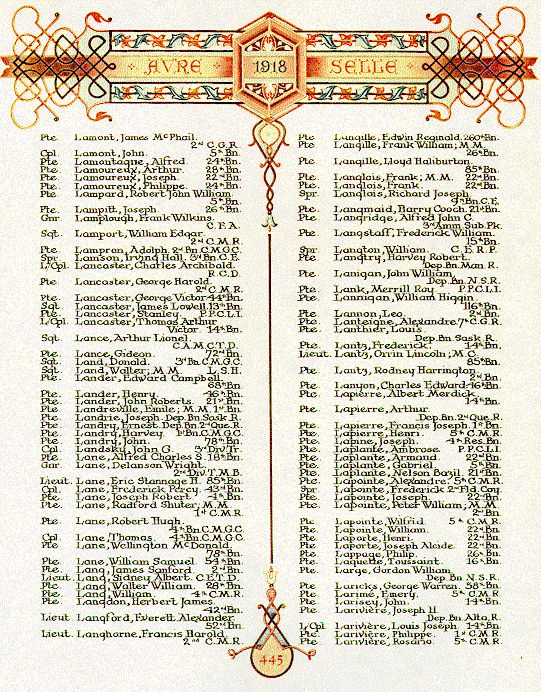 AVRE 1918 SELLE
Pte. Lamont, James McPhail
2nd C.G.R.
Cpl. Lamont, John. 5th Bn.
Pte Lamontagne, Alfred 24th Bn.
Pte Lamoureux, Arthur 28th Bn.
Pte Lamoureux, Joseph 22nd Bn.
Pte Lamoureux, Philippe 24th Bn.
Pte Lampard, Robert John William
5th Bn.
Pte. Lampitt, Joseph 26th Bn.
Gnr Lamplough, Frank Wilkins
C.F.A.
Sgt. Lamport, William Edgar
2nd C.M.R.
Pte. Lampron, Adolph. 2nd Bn. C.M.G.C.
Spr. Lamson, Irving Hall. 3rd Bn. C.E.
L/Cpl Lancaster, Charles Archibald
R.C.D.
Pte Lancaster, George Harold
2nd C.M.R.
Pte. Lancaster, George Victor 44th Bn.
Sgt. Lancaster, James Lowell. 13th Bn.
Pte Lancaster, Stanley. P.P.C.L.I.
L/Cpl Lancaster, Thomas Arthur
Victor 14th Bn.
Sgt Lance, Arthur Lionel
C.A.M.C.T.D.
Pte. Lance, Gideon. 72nd Bn.
Sgt. Land, Donald. 3rd Bn. C.M.G.C.
Sgt. Land, Walter; M.M. L.S.H.
Pte. Lander, Edward Campbell
68th Bn.
Pte. Lander, Henry. 46th Bn.
Pte Lander, John Roberts. 21st Bn.
Pte. Landreville, Emile; M.M. 1st Bn.
Pte Landrie, Joseph. Dep. Bn. Sask. R.
Pte. Landry, Ernest. Dep. Bn. 2nd Que. R.
Pte. Landry, Harvey. 1st Bn. C.M.G.C.
Pte Landry, John. 78th Bn.
Cpl. Landsky, John G. 3rd Div. Tr.
Pte Lane, Alfred Charles S. 18th Bn.
Gnr Lane, Delanson Wright
2nd Div. T.M.B.
Lieut. Lane, Eric Stannage H. 85th Bn.
Cpl. Lane, Frederick Percy. 43rd Bn.
Pte. Lane, Joseph Robert. 4th Bn.
Pte. Lane, Radford Shuter; M.M.
1st C.M.R.
Pte. Lane, Robert Hugh
4th Bn. C.M.G.C.
Cpl. Lane, Thomas. 4th Bn. C.M.G.C.
Pte. Lane, Wellington McDonald
78th Bn.
Pte Lane, William Samuel. 54th Bn.
Pte Lang, James Sanford. 2nd Bn.
Lieut. Lang, Sidney Albert. C.E.T.D.
Pte Lang, Walter William. 28th Bn.
Pte Lang, William. 4th C.M.R.
Pte Langdon, Herbert James
42nd Bn.
Lieut Langford, Everett Alexander
52nd Bn.
Lieut. Langhorne, Francis Harold
2nd C.M.R.
Pte Langille, Edwin Reginald. 260th Bn.
Pte Langille, Frank William; M.M.
26th Bn.
Pte Langille, Lloyd Haliburton
85th Bn.
Pte Langlois, Frank; M.M. 22nd Bn.
Pte Langlois, Frank 22nd Bn.
Spr Langlois, Richard Joseph
4th Bn. C.E.
Pte Langmaid, Harry Gooch 21st Bn.
Pte Langridge, Alfred John C.
3rd Amm. Sub. Pk.
Pte Langstaff, Frederick William
15th Bn.
Spr. Langton, William. C.E.R.P.
Pte Langtry, Harvey Robert
Dep. Bn. Man. R.
Pte. Lanigan, John William
Dep. Bn. N.S.R.
Pte. Lank, Merrill Roy. P.P.C.L.I.
Pte Lannigan, William Higgin
116th Bn.
Pte Lannon, Leo 2nd Bn.
Pte Lanteigne, Alexandre. 7th C.G.R.
Pte Lantier, Louis
Dep. Bn. Sask. R.
Pte Lantz, Frederick 14th Bn.
Lieut. Lantz, Orrin Lincoln; M.C.
85th Bn.
Pte. Lantz, Rodney Harrington
2nd Bn.
Pte Lanyon, Charles Edward 16th Bn.
Pte Lapierre, Albert Merdick
14th Bn.
Pte Lapierre, Arthur
Dep. Bn. 2nd Que. R.
Pte Lapierre, Francis Joseph. 1st Bn.
Pte Lapierre, Henri 5th C.M.R.
Pte Lapine, Joseph 4th Res. Bn.
Pte Laplante, Ambrose P.P.C.L.I.
Pte Laplante, Armand 22nd Bn.
Pte Laplante, Gabriel 5th Bn.
Pte Laplante, Nelson Bazil 21st Bn.
Pte Lapointe, Alexandre. 5th C.M.R.
Spr Lapointe, Frederick 2nd Fld. Coy.
Pte Lapointe, Joseph 22nd Bn.
Pte Lapointe, Peter William; M.M.
2nd Bn.
Pte Lapointe, Wilfrid 5th C.M.R.
Pte. Lapointe, William 22nd Bn.
Pte. Laporte, Henri 22nd Bn.
Pte Laporte, Joseph Alcide 22nd Bn.
Pte. Lappage, Philip 26th Bn.
Pte Laquette, Toussaint 16th Bn.
Pte Large, Gordon William
Dep. Bn. N.S.R.
Pte. Laricks, George Warren. 38th Bn.
Pte Larimé, Emery. 5th C.M.R.
Pte. Larisey, John. 14th Bn.
Pte Larivière, Joseph H.
Dep. Bn. Alta. R.
L/Cpl Larivière, Louis Joseph. 14th Bn.
Pte. Larivière, Philippe. 1st C.M.R.
Pte Larivière, Rosario. 5th C.M.R.
445